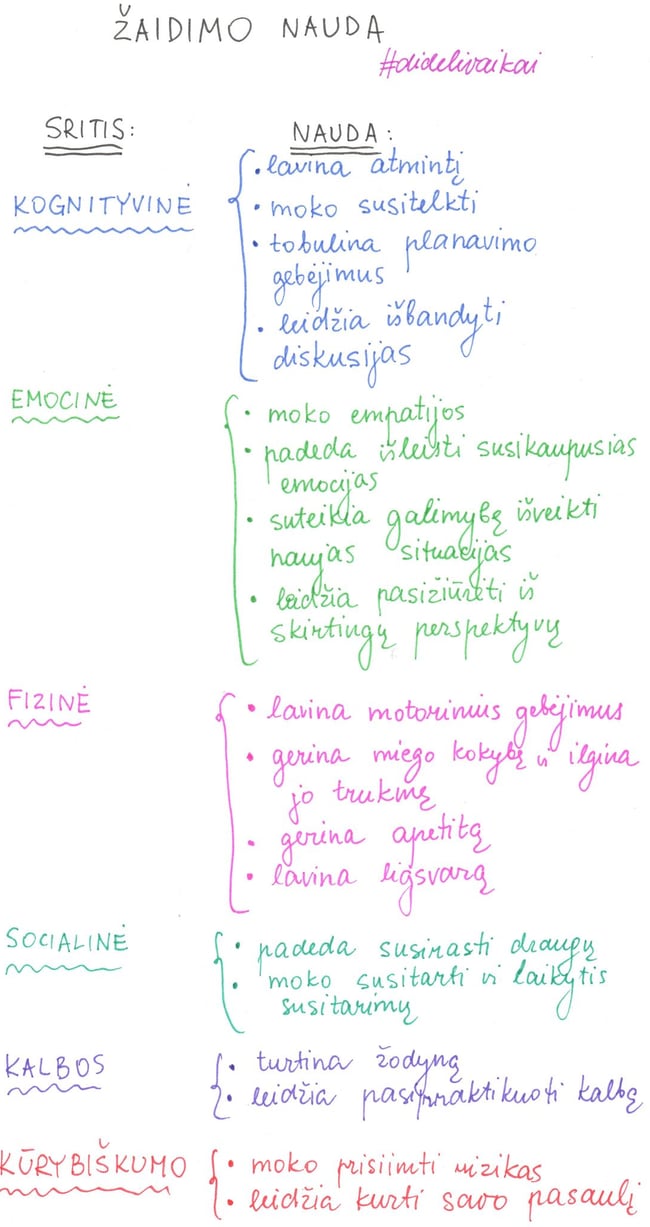 ŽAIDIMO NAUDA
#didelivaikai
SRITIS:
NAUDA:
KOGNITYVINĖ
• lavina atmintį
• moko susitelkti
• tobulina planavimo
gebėjimus
• leidžia išbandyti
diskusijas
EMOCINĖ
• moko empatijos
• padeda išleisti susikaupusias
emocijas
• suteikia galimybę išveikti
naujas situacijas
• leidžia pasižiūrėti iš
skirtingų perspektyvų
FIZINĖ
• lavina motorinius gebėjimus
• gerina miego kokybę ir ilgina
jo trukmę
• gerina apetitą
• lavina ligsvarą
SOCIALINĖ
• padeda susirasti draugų
• moko susitarti ir laikytis
susitarimų
KALBOS
• turtina žodyną
• leidžia pasipraktikuoti kalbą
KŪRYBIŠKUMO
• moko prisiimti rizikas
• leidžia kurti savo pasaulį